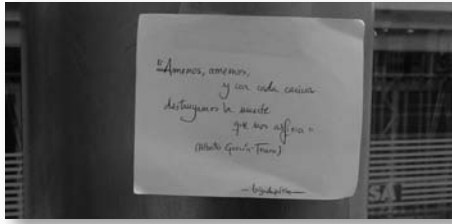 "Amemos, amemos,
y con cada caricia
destruyamos la muerte
que nos asfixia"
(Alberto García-Teresa)
SA